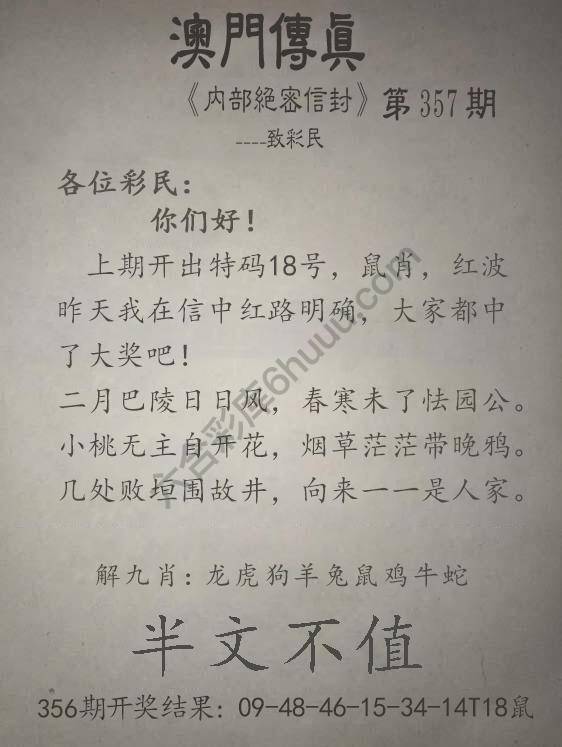 澳門傳真
《内部絕密信封》第357期
----致彩民
各位彩民：
你们好！
上期开出特码18号，鼠肖，红波
昨天我在信中红路明确，大家都中
了大奖吧！
二月巴陵日日风，春寒未了怯园公。
小桃无主自开花，烟草茫茫带晚鸦。
几处败垣围故井，向来一一是人家。
解九肖：龙虎狗羊兔鼠鸡牛蛇
半文不值
356期开奖结果：09-48-46-15-34-14T18鼠
六合彩库6huuu.com